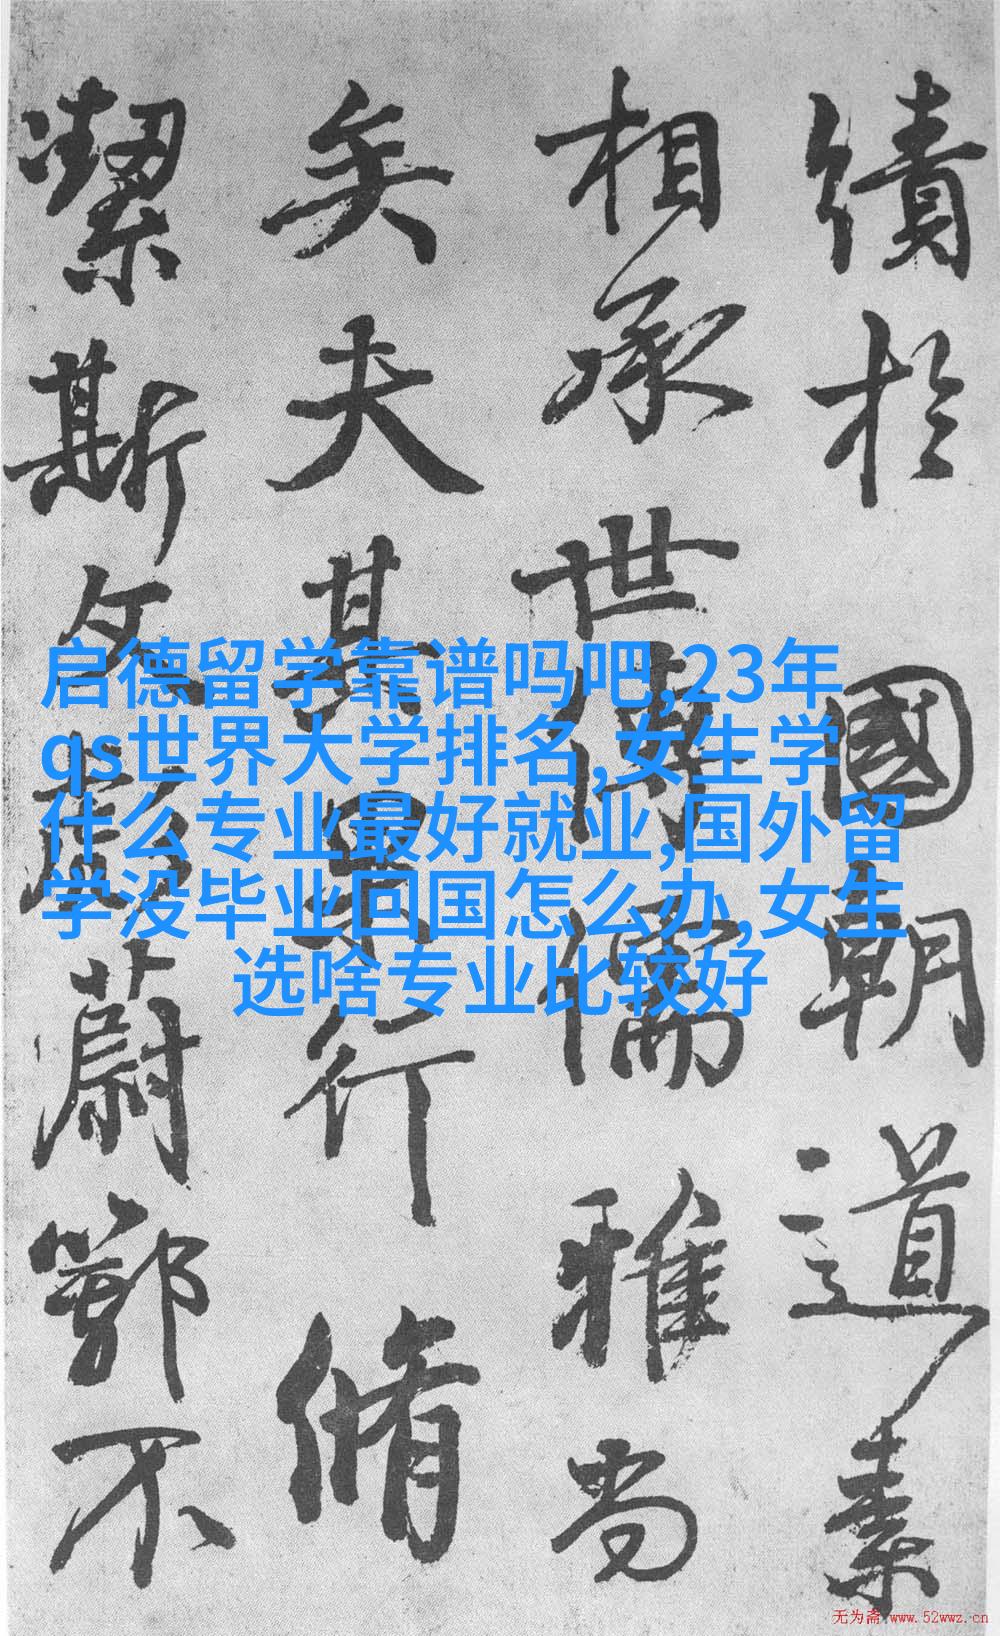 績於國朝道素
相承世傳儒雅尚
矣夫其果行脩
潔斯文彪蔚鄂不
启德留学靠谱吗吧,23年
qs世界大学排名,女生学
什么专业最好就业,国外留
学没毕业回国怎么办,女生
选啥专业比较好
无为斋 www.52wwz.cn